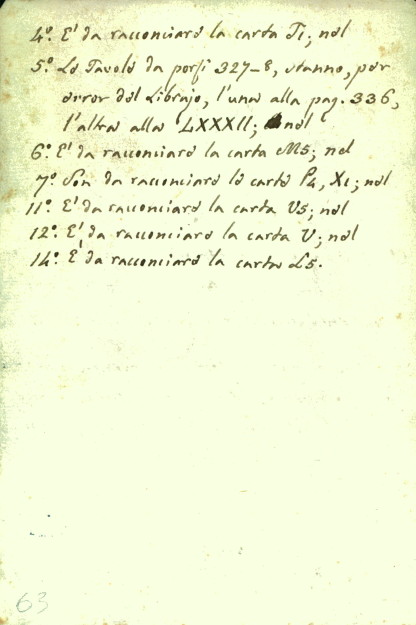 4.° E' da racconciare la carta T1; nel
5.° Le Tavole da porsi 327-8, stanno, per
error del Librajo, l'una alla pag. 336,
l'altra alla LXXXII; nel
6.° E' da racconciare la carta M5; nel
7.° Son da racconciare le carte P4, X1; nel
11.° E' da racconciare la carta V5; nel
12.° E' da racconciare la carta V; nel
14.° E' da racconciare la carta L5.
63